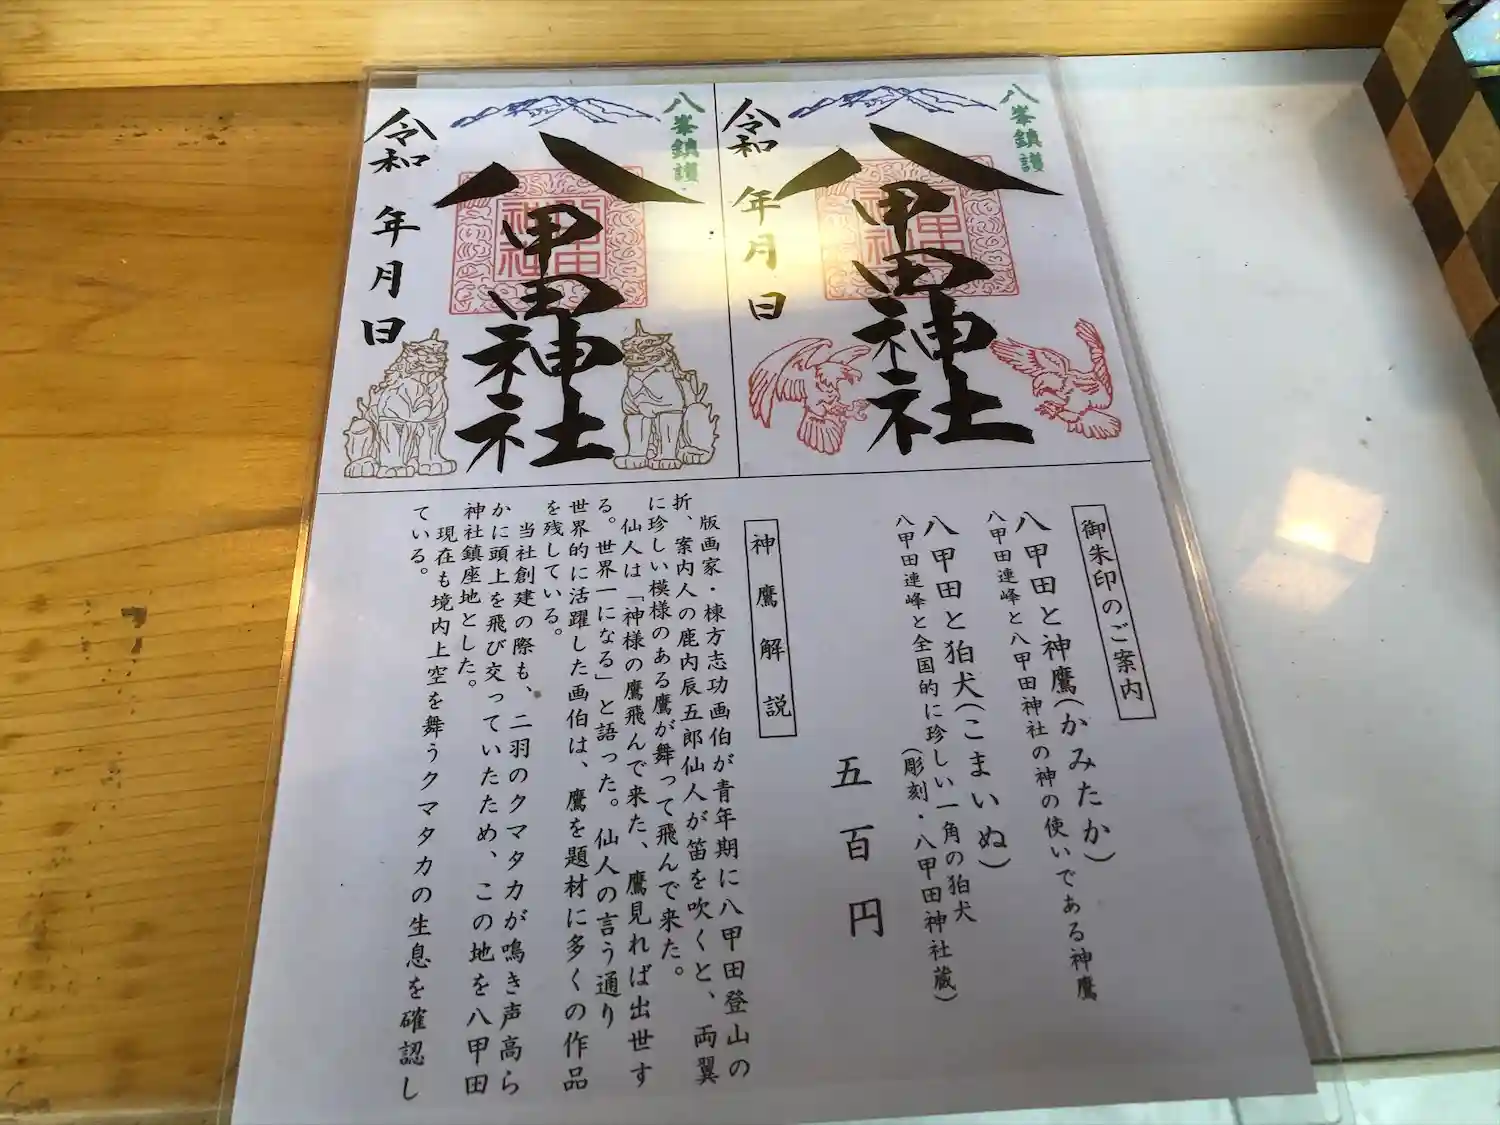 八峯鎮護
八甲田神社
令和 年月日
八峯鎮護
八甲田神社
令和 年月日
御朱印のご案内
八甲田と神鷹(かみたか)
八甲田連峰と八甲田神社の神の使いである神鷹
八甲田と狛犬(こまいぬ)
八甲田連峰と全国的に珍しい一角の狛犬
(彫刻・八甲田神社蔵)
五百円
神鷹解説
版画家・棟方志功画伯が青年期に八甲田登山の
折、案内人の鹿内辰五郎仙人が笛を吹くと、両翼
に珍しい模様のある鷹が舞って飛んで来た。
仙人は「神様の鷹飛んで来た、鷹見れば出世す
る。世界一になる」と語った。仙人の言う通り
世界的に活躍した画伯は、鷹を題材に多くの作品
を残している。
当社創建の際も、二羽のクマタカが鳴き声高ら
かに頭上を飛び交っていたため、この地を八甲田
神社鎮座地とした。
現在も境内上空を舞うクマタカの生息を確認し
ている。